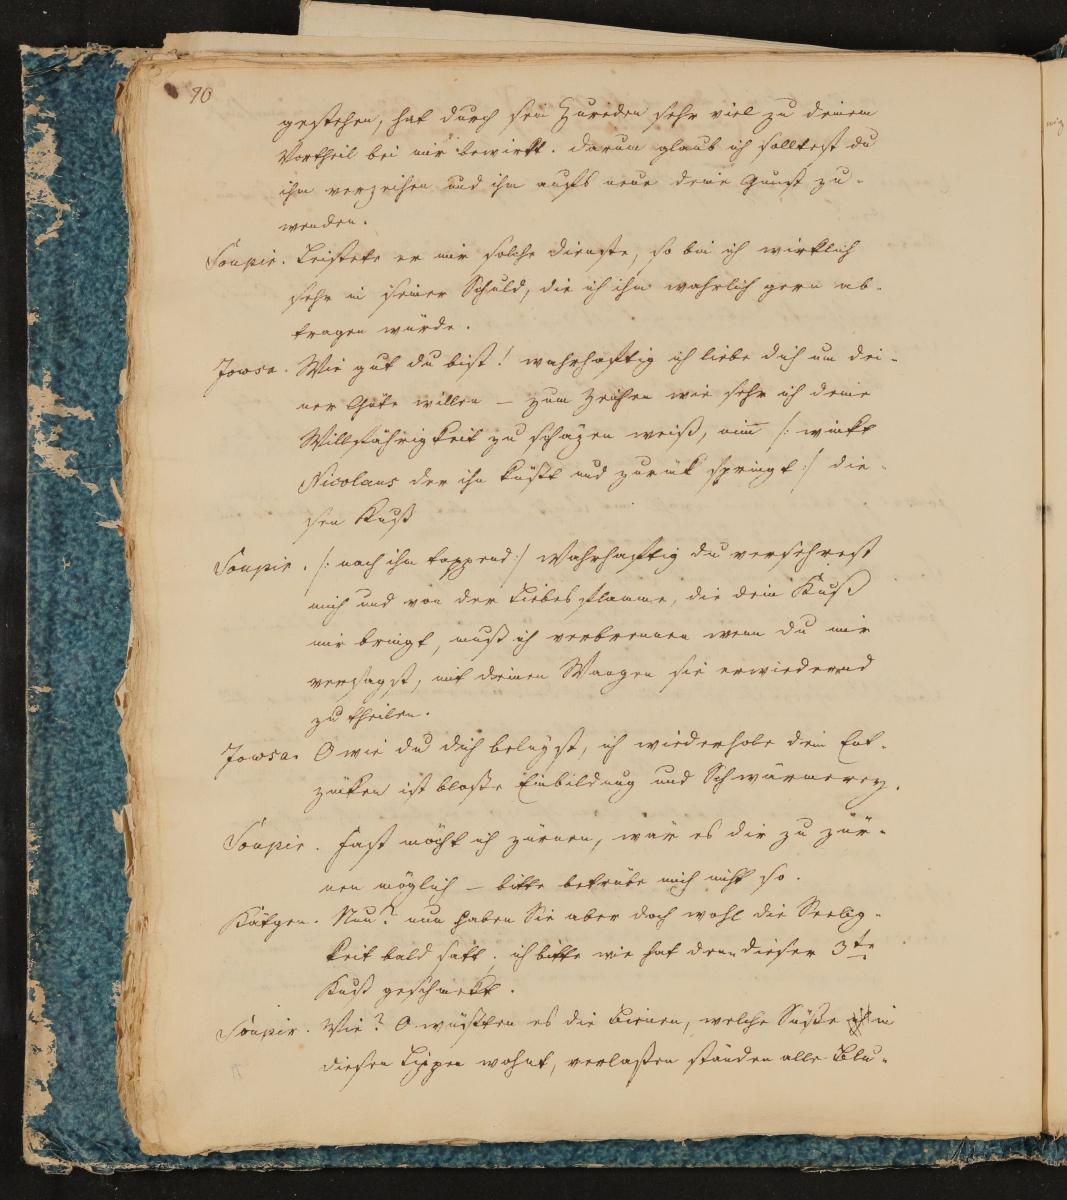 90
gestehen, hat durch sein Zureden sehr viel zu deinem
Vortheil bei mir bewirkt. darum glaub ich solltest du
ihm verzeihen und ihm aufs neue deine Gunst zu-
wenden.
Soupir. Leistete er mir solche dienste, so bin ich wirklich
sehr in seiner Schuld, die ich ihm wahrlich gern ab-
tragen würde.
Jowsa. Wie gut du bist! wahrhaftig ich liebe dich um dei-
ner Güte willen – zum Zeichen wie sehr ich deine
Willfährigkeit zu schäzen weiß, nim̄ /: winkt
Nicolaus der ihn küßt und zurük springt :/ die-
sen Kuß
Soupir. /: nach ihm tappend :/ Wahrhaftig du versehrest
mich und von der Liebesflamme, die dein Kuß
mir bringt, muß ich verbrennen wenn du mir
versagst, mit deinen Wangen sie erwiedernd
zu theilen.
Jowsa. O wie du dich belügst, ich wiederhole dein Ent-
züken ist bloße Einbildung und Schwärmerey.
Soupir. Fast möcht ich zürnen, wär es dir zu zür-
nen möglich – bitte betrübe mich nicht so.
Kätgen. Nun? nun haben Sie aber doch wohl die Seelig-
keit bald satt; ich bitte wie hat denn dieser 3te
Kuß geschmekt.
Soupir. Wie? O wüßten es die Bienen, welche Süße in
diesen Lippen wohnt, verlaßen ständen alle Blu-